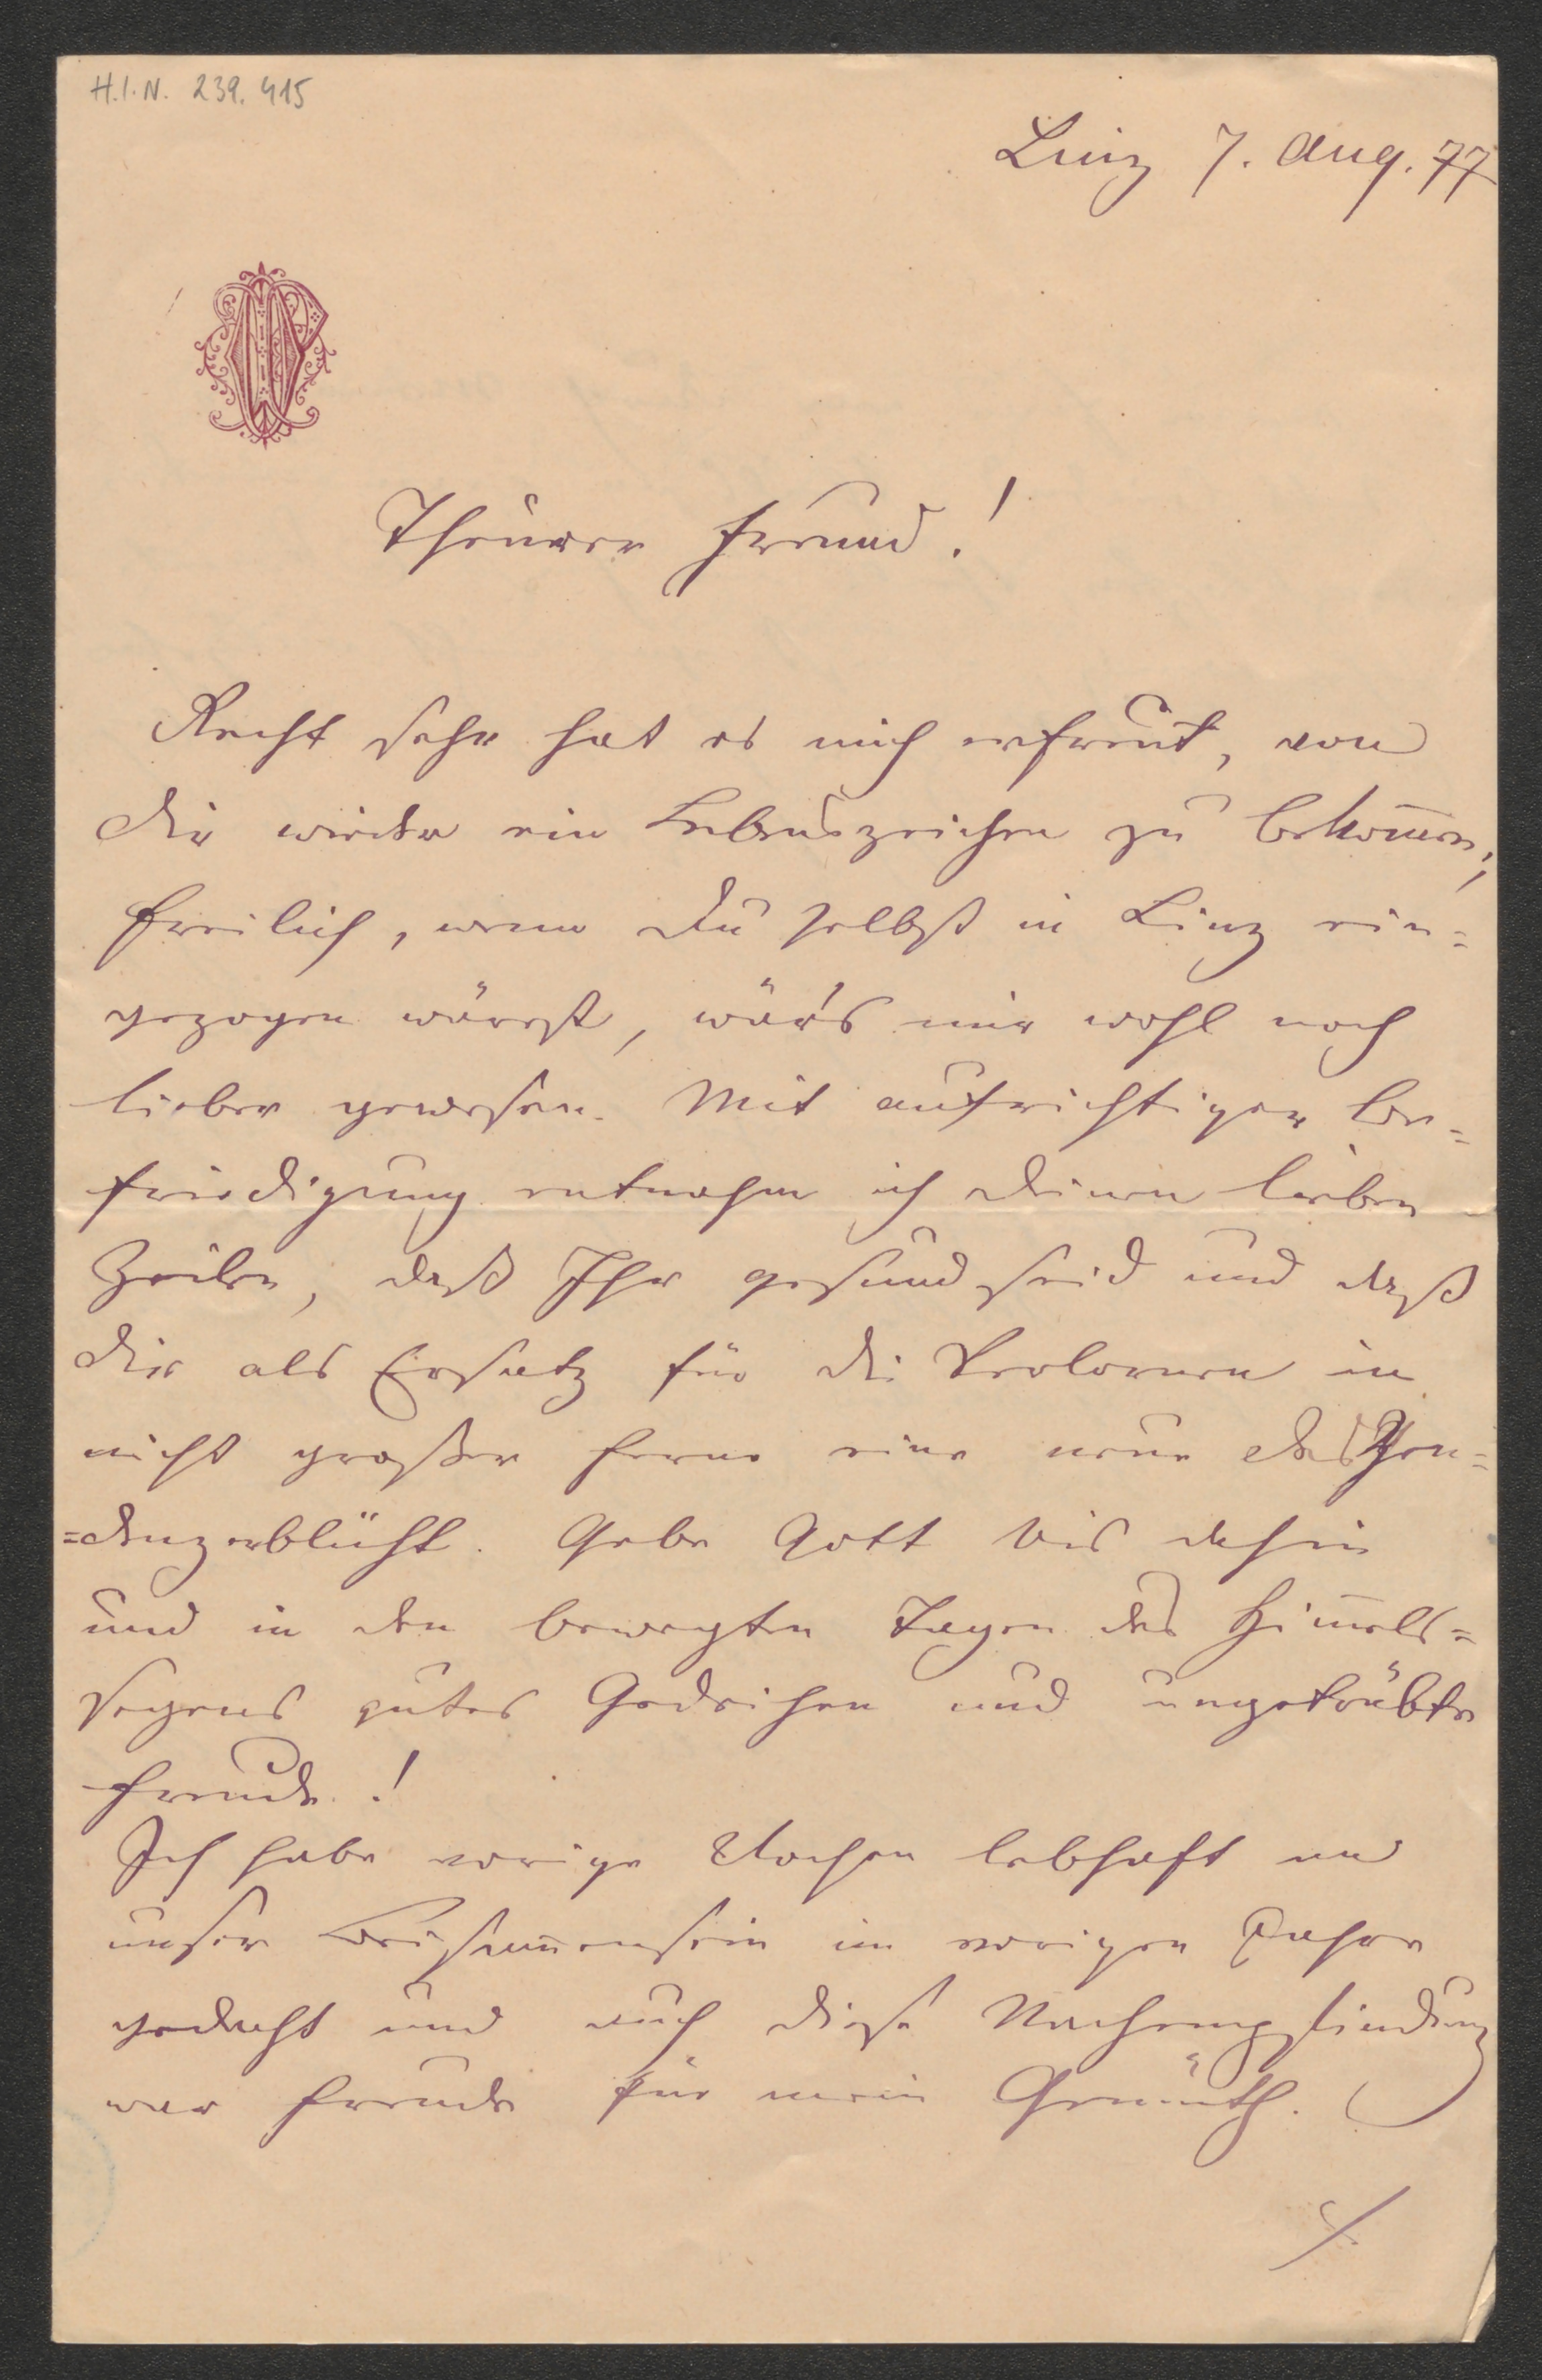 H.I.N. 239.415
Linz 7. Aug. 77
Theurer Freund!
Recht sehr hat es mich erfreut, von
Dir wieder ein Lebenszeichen zu bekom̄en;
freilich, wenn Du selbst in Linz ein=
gezogen wärest, wär's mir wohl noch
lieber gewesen. Mit aufrichtiger Be=
friedigung entnahm ich Deinen lieben
Zeilen, daß Ihr gesund seid und daß
Dir als Ersatz für die Verlorenen in
nicht großer Ferne eine neue Deszen=
=denz erblüht. Gebe Gott bis dahin
und in den bewegten Tagen des Him̄els=
segens gutes Gedeihen und ungetrübte
Freude!
Ich habe vorige Wochen lebhaft an
unser Beisam̄ensein im vorigen Jahre
gedacht und auch diese Nachempfindung
war Freude für mein Gemüth.